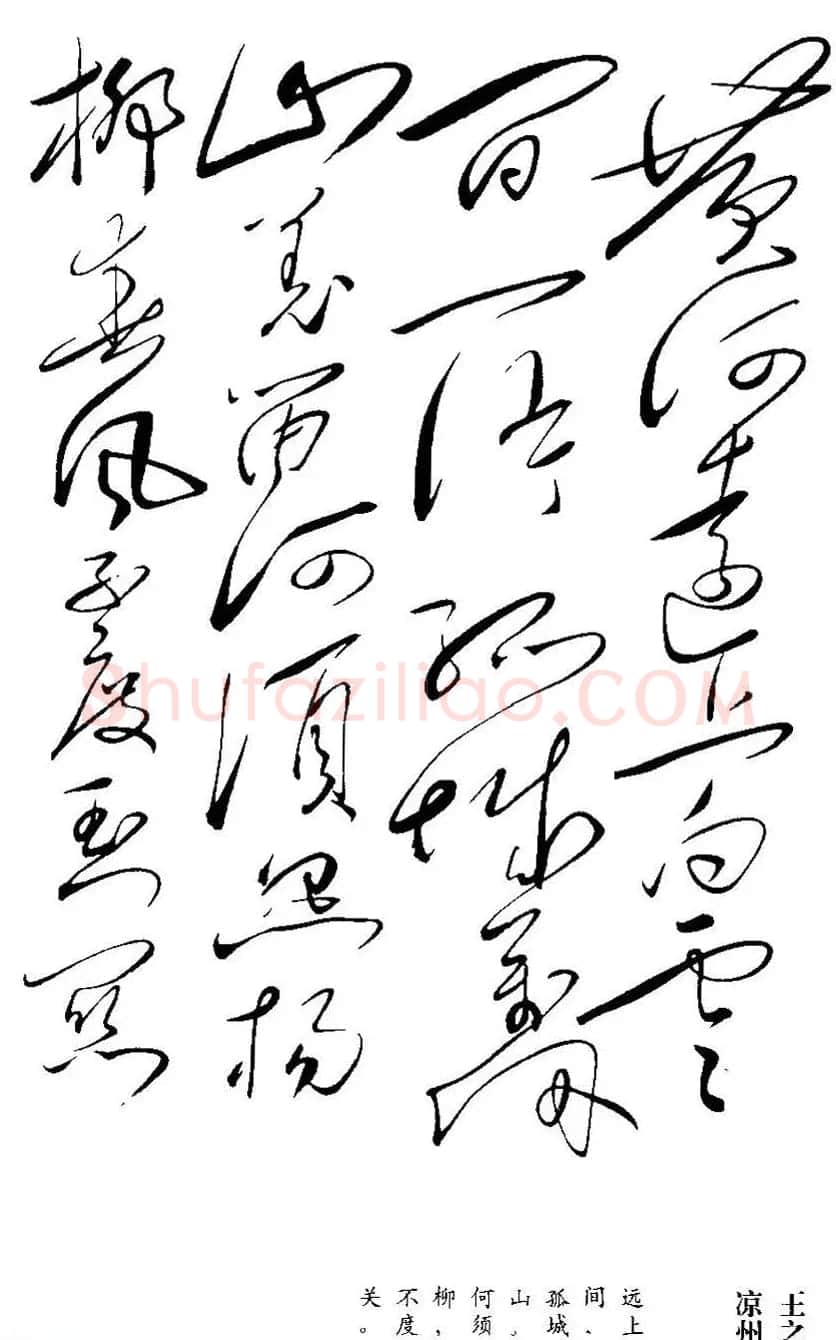 黄河遠上白雲
間一片孤城萬仞
山羌笛何須怨楊
柳春風不度玉関
Shufaziliao.COM
王之
凉州
远上
间、
孤城
山。
何须
柳，
不度
关。